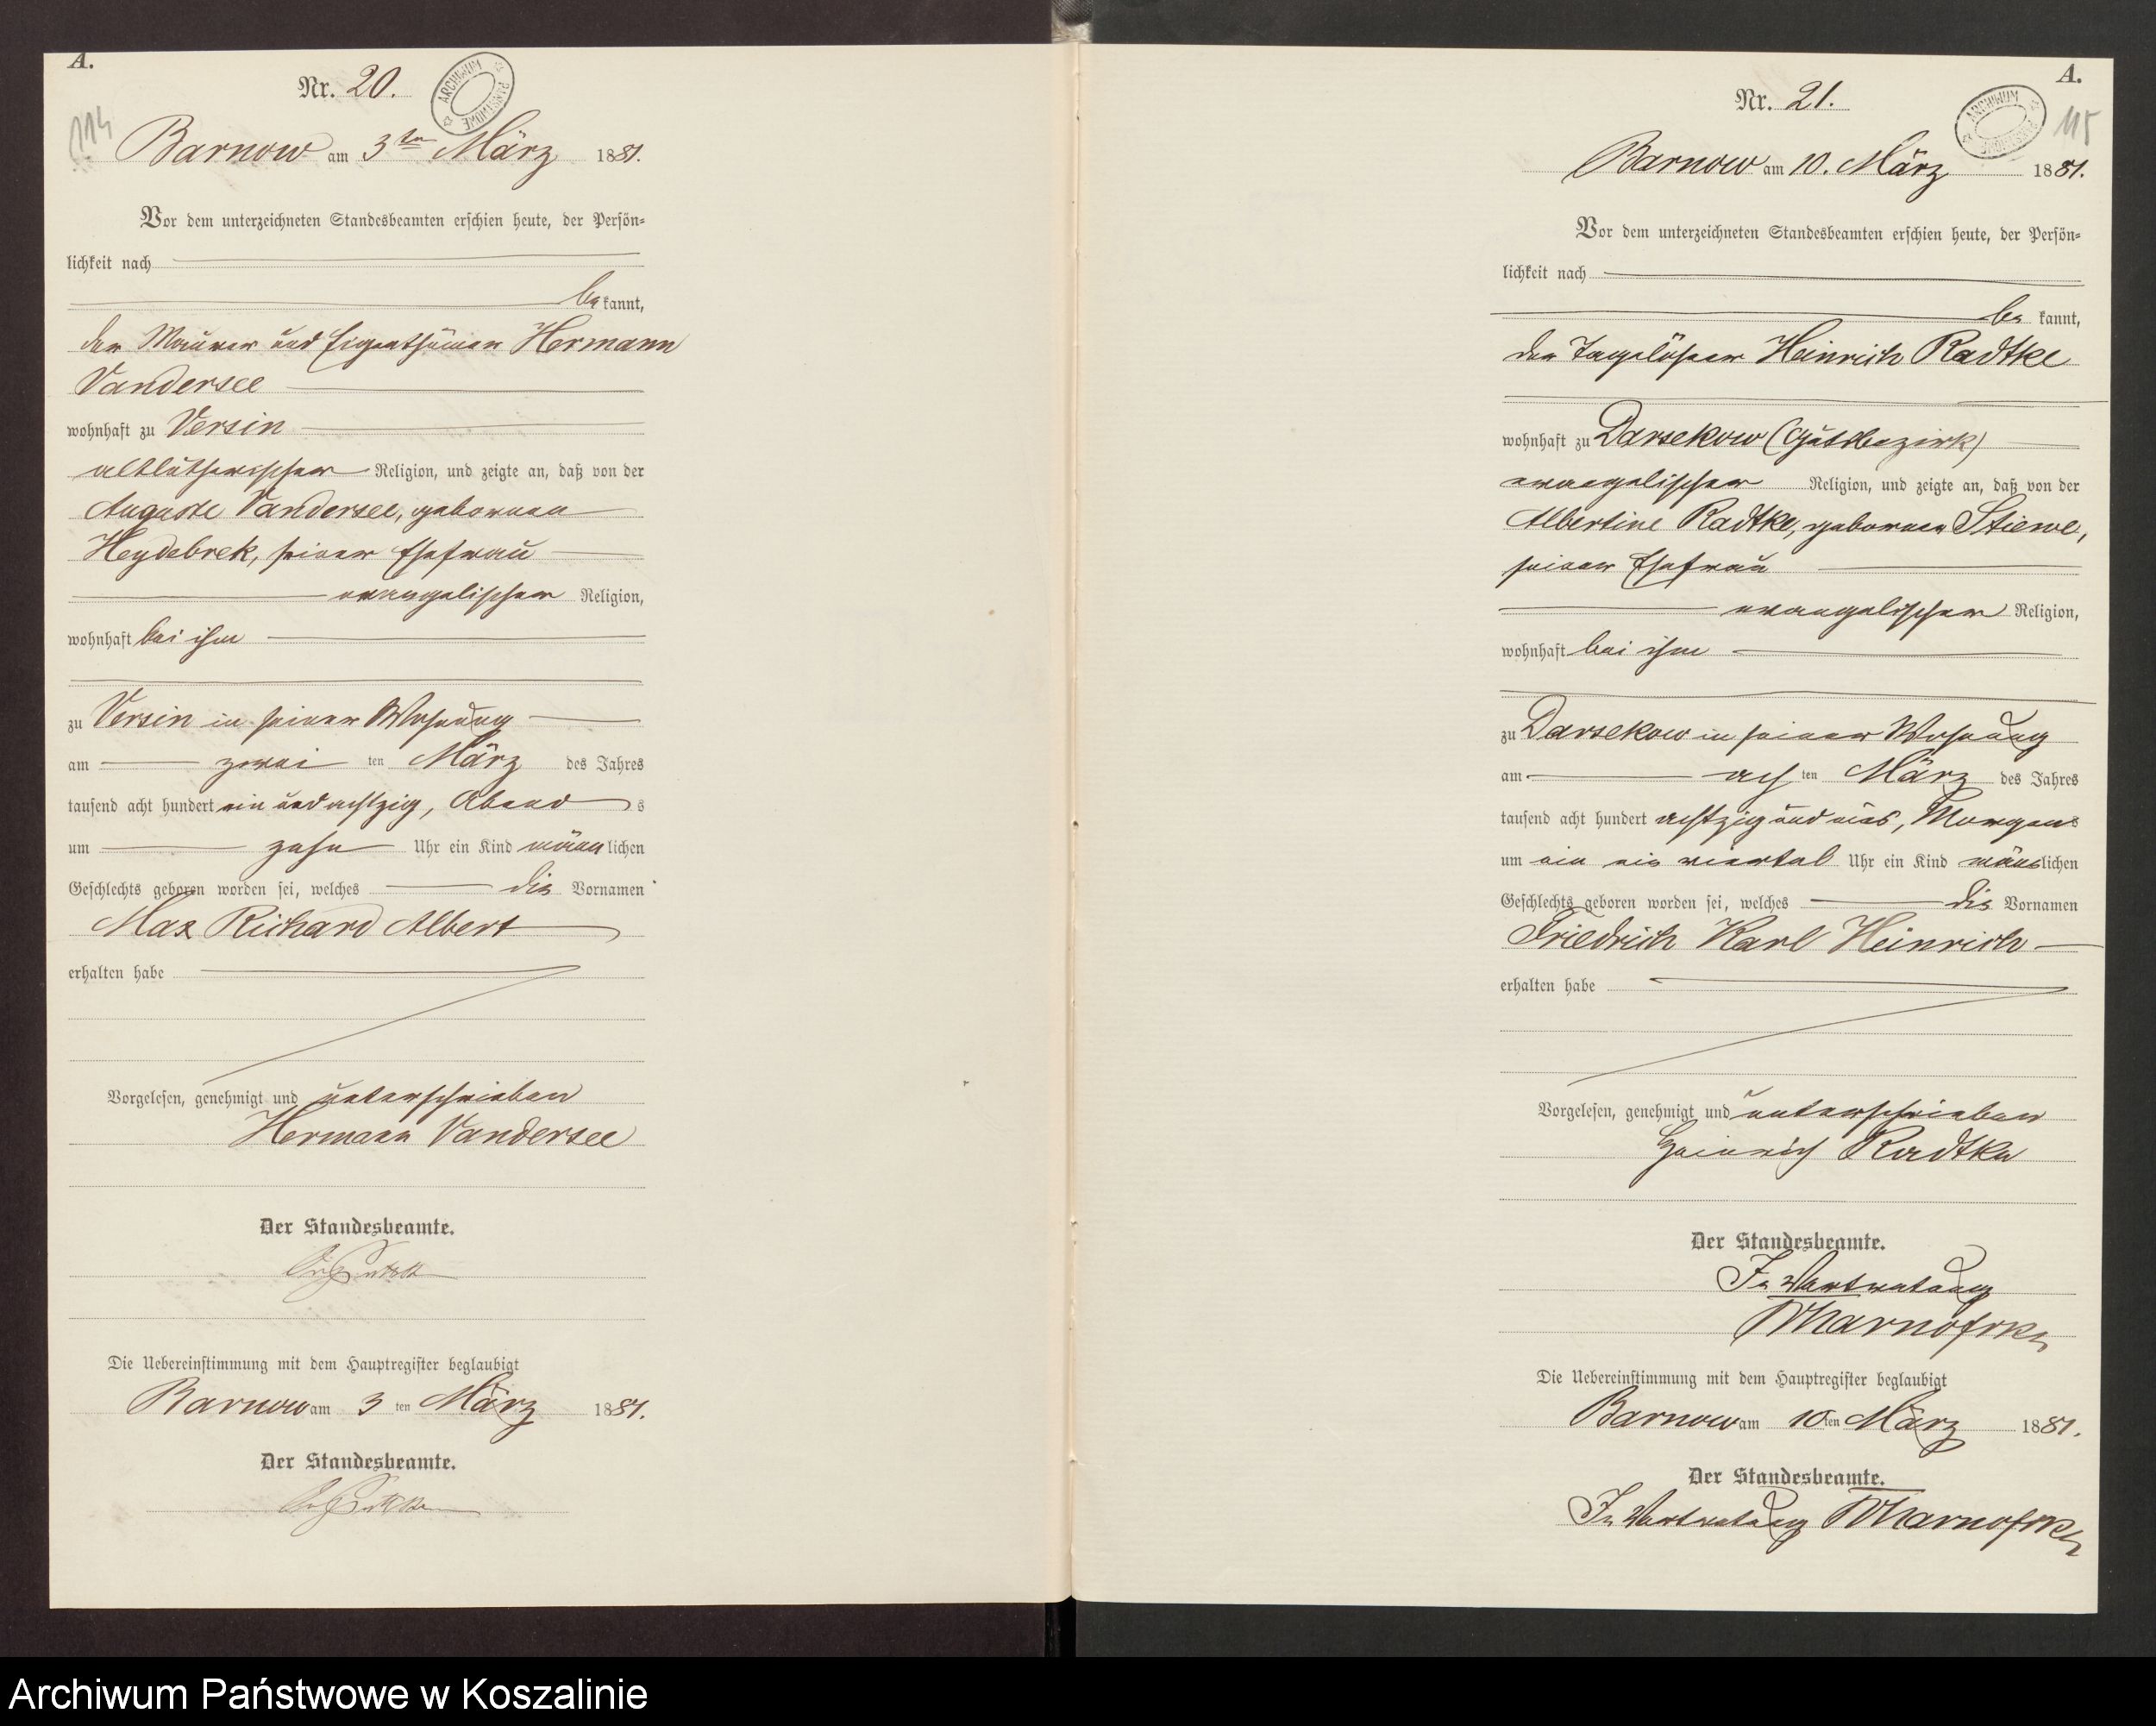 A.
Nr. 20.
ARCHIWUM PAŃSTWOWE
114
Barnow am 3ten März 1881.
Vor dem unterzeichneten Standesbeamten erschien heute, der Persön-
lichkeit nach
be kannt,
der Maurer und Eigenthümer Hermann
Vandersee
wohnhaft zu Versin
altlutherischer Religion, und zeigte an, daß von der
Auguste Vandersee, geborenen
Heydebrek, seiner Ehefrau
evangelischer Religion,
wohnhaft bei ihm
zu Versin in seiner Wohnung
am zwei ten März des Jahres
tausend acht hundert ein und achtzig, Abend s
um zehn Uhr ein Kind männ lichen
Geschlechts geboren worden sei, welches die Vornamen
Max Richard Albert
erhalten habe
Vorgelesen, genehmigt und unterschrieben
Hermann Vandersee
Der Standesbeamte.
Die Uebereinstimmung mit dem Hauptregister beglaubigt
Barnow am 3 ten März 1881.
Der Standesbeamte.
A.
Nr. 21.
ARCHIWUM PAŃSTWOWE
115
Barnow am 10. März 1881.
Vor dem unterzeichneten Standesbeamten erschien heute, der Persön-
lichkeit nach
be kannt,
der Tagelöhner Heinrich Radtke
wohnhaft zu Darsekow (Gutsbezirk)
evangelischer Religion, und zeigte an, daß von der
Albertine Radtke, geborenen Stiewe,
seiner Ehefrau
evangelischer Religion,
wohnhaft bei ihm
zu Darsekow in seiner Wohnung
am ach ten März des Jahres
tausend acht hundert achtzig und eins, Morgens
um ein ein viertel Uhr ein Kind männ lichen
Geschlechts geboren worden sei, welches die Vornamen
Friedrich Karl Heinrich
erhalten habe
Vorgelesen, genehmigt und unterschrieben
Heinrich Radtke
Der Standesbeamte.
In Vertretung
Die Uebereinstimmung mit dem Hauptregister beglaubigt
Barnow am 10 ten März 1881.
Der Standesbeamte.
In Vertretung
Archiwum Państwowe w Koszalinie